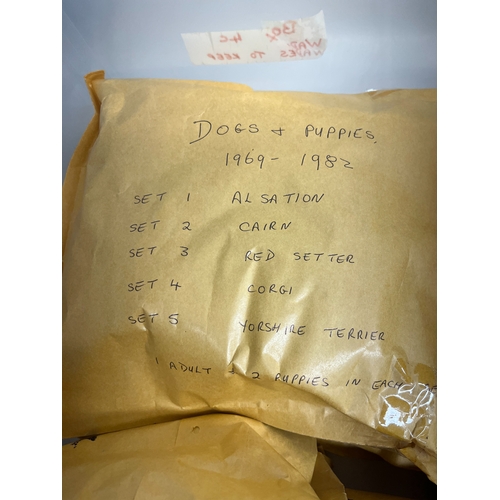 BOX 4C
WADE
WHIMSIES TO KEEP
DOGS + PUPPIES.
1969 - 1982
SET 1 ALSATION
SET 2 CAIRN
SET 3 RED SETTER
SET 4 CORGI
SET 5 YORSHIRE TERRIER
1 ADULT + 2 PUPPIES IN EACH